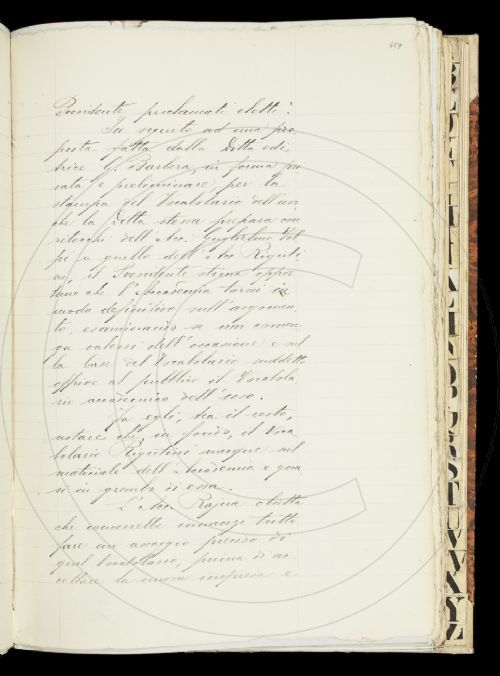 459
Presidente, proclamati eletti.
In seguito ad una pro-
posta fatta dalla Ditta edi-
trice G. Barbera, in forma pri-
vata e preliminare per la
stampa del Vocabolario dell'uso
che la Ditta stessa prepara con
ritocchi dell'Acc. Guglielmo Vol-
pi a quello dell'Acc. Riguti-
ni, il Presidente stima oppor-
tuno che l'Accademia torni in
modo definitivo sull'argomen-
to, esaminando se non conven-
ga valersi dell'occasione e sul-
la base del Vocabolario suddetto
offrire al pubblico il Vocabola-
rio accademico dell'uso.
Fa egli, tra il resto,
notare che, in fondo, il Voca-
bolario Rigutini nacque nel
materiale dell'Accademia e qua-
si in grembo di essa.
L'Acc. Rajna
che converrebbe innanzi tutto
fare un assaggio preciso di
quel Vocabolario, prima di ac-
cettare la nuova impresa e
B
L
N
O
P
Q
R
S
T
U
V
X
Y
Z